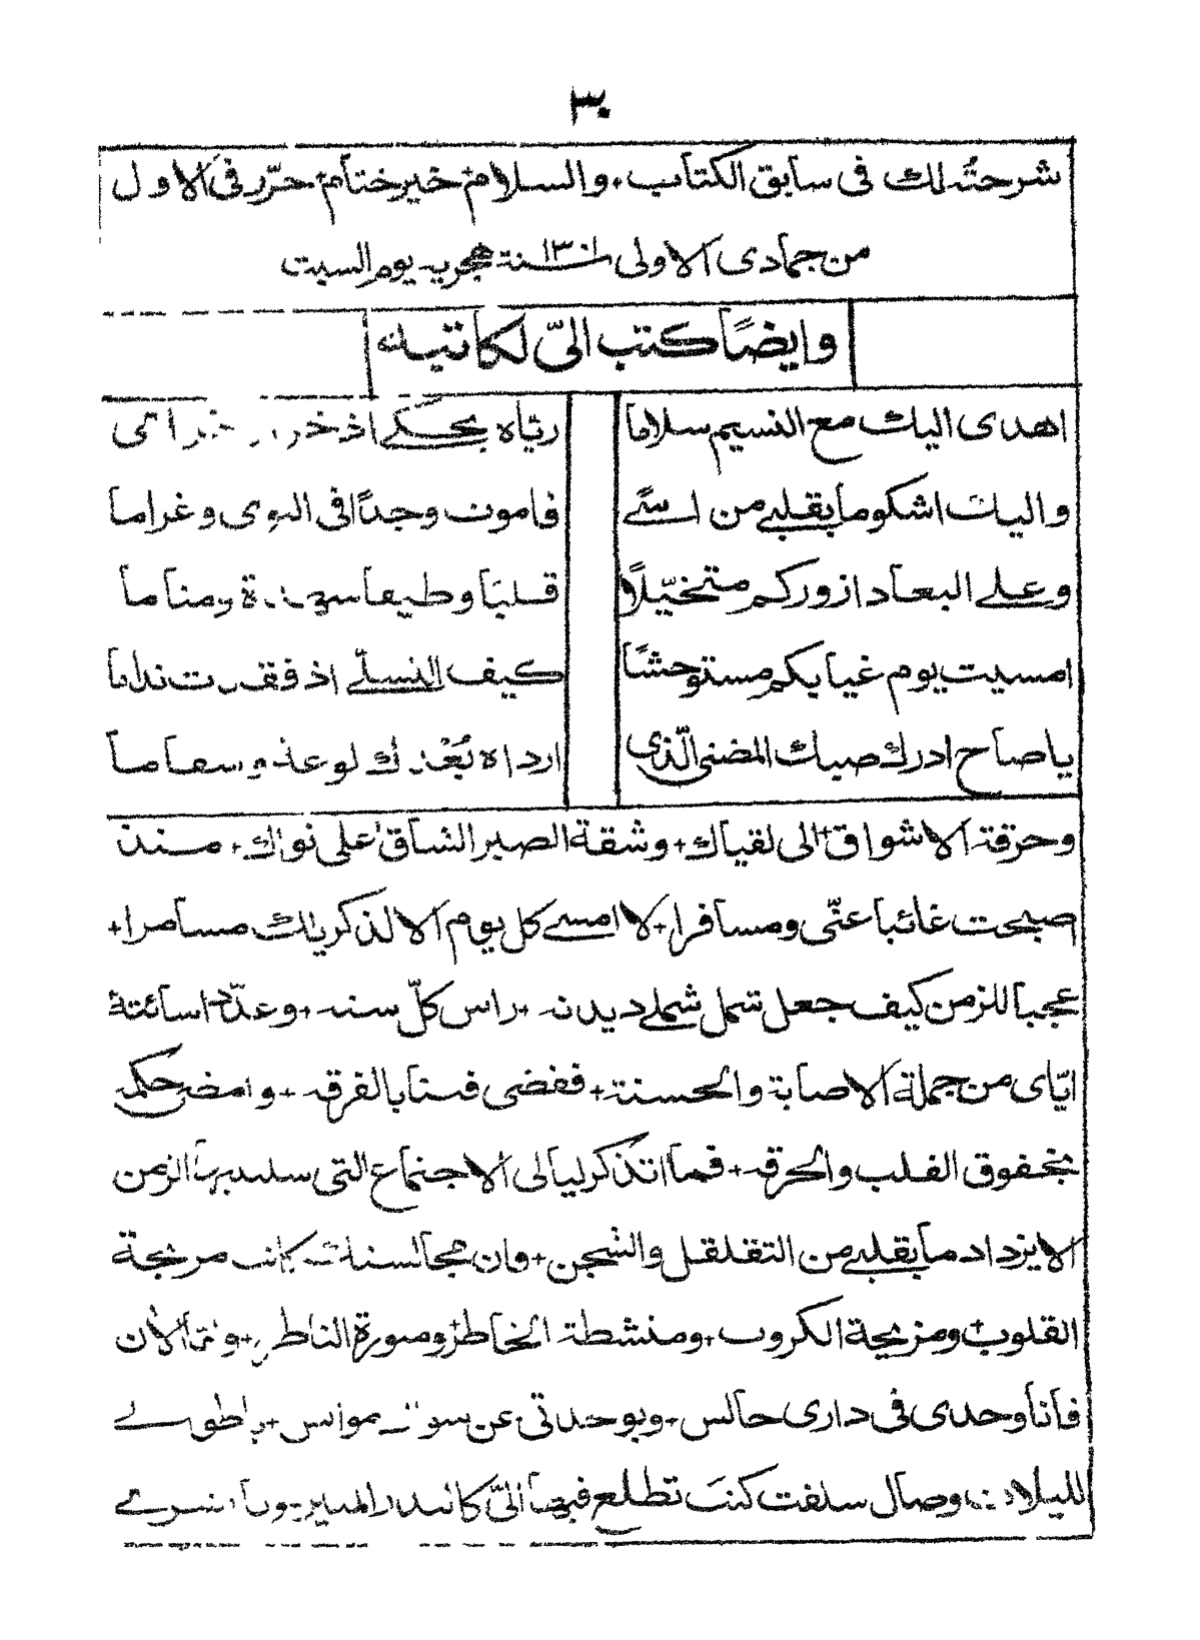 ٣٠
شرحتُه لك فى سابق الكتاب + والسلام خير ختام + حرّر فى الاول
من جمادى الاولى سنة ١٣٠١ هجريه يوم السبت
وايضًا كتب الىّ لكاتبه
اهدى اليك مع النسيم سلاما
ريّاه يحكى اذ
واليك اشكو ما بقلبى من اسًى
فاموت وجدًا فى الهوى وغراما
وعلى البعاد ازوركم متخيّلًا
قلبًا وطيفا ومناما
امسيت يوم غيابكم مستوحشًا
كيف التسلّى اذ فقدت نداما
يا صاح ادرك صبك المضنى الّذى
ارداه بُعْدك لوعة وسقاما
وحرقة الاشواق + الى لقياك + وشقة الصبر الشاق على نواك + منذ
صبحت غائبا عنّى ومسافرا + لا امسى كل يوم الا لذكرياك مسامرا +
عجبا للزمن كيف جعل شمل شملى ديدنه + راس كلّ سنه + وعدّد اسائته
ايّاى من جملة الاصابة والحسنة + فقضى فينا بالفرقه + وامضى حكمه
بخفوق القلب والحرقه + فما اتذكر ليالى الاجتماع التى سلبها الزمن
الا يزداد ما بقلبى من التقلقل والشجن + وان مجالستك كانت مرنجة
القلوب ومزيحة الكروب + ومنشطة الخاطر ومنورة الناظر + وامّا الان
فانا وحدى فى دارى جالس + وبوحدتى عن موانس +
وصال سلفت كنت تطلع فيها الىّ كالبدر المنير